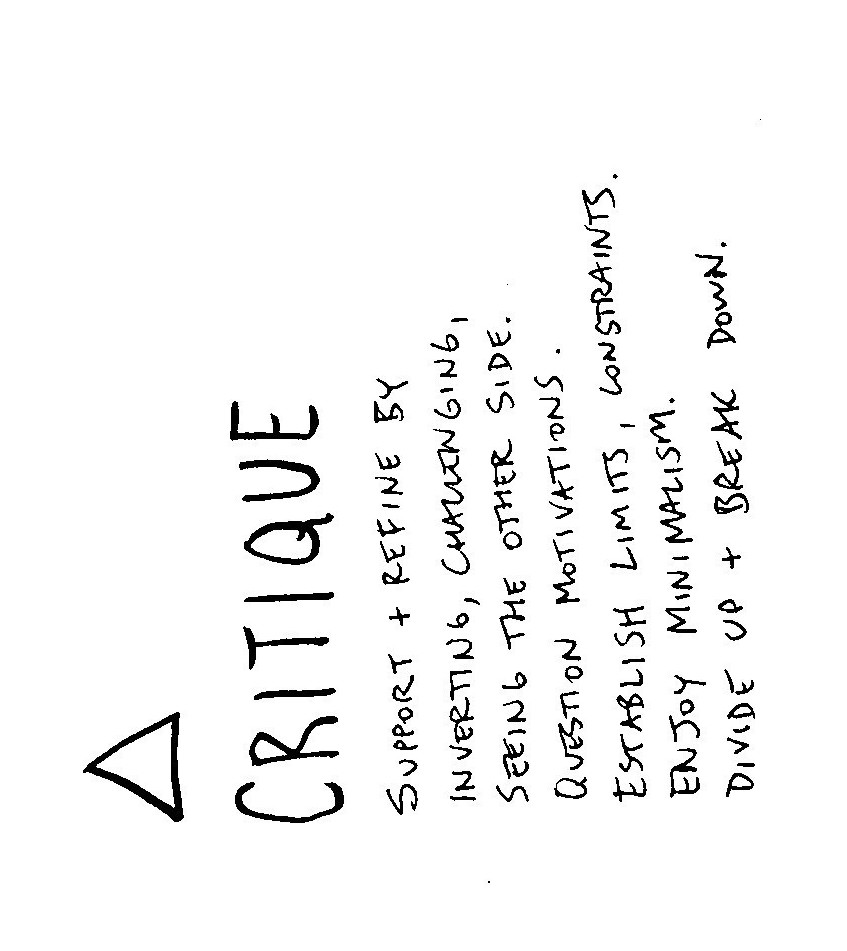 CRITIQUE
SUPPORT + REFINE BY
INVERTING, CHALLENGING,
SEEING THE OTHER SIDE.
QUESTION MOTIVATIONS.
ESTABLISH LIMITS, CONSTRAINTS.
ENJOY MINIMALISM.
DIVIDE UP + BREAK DOWN.